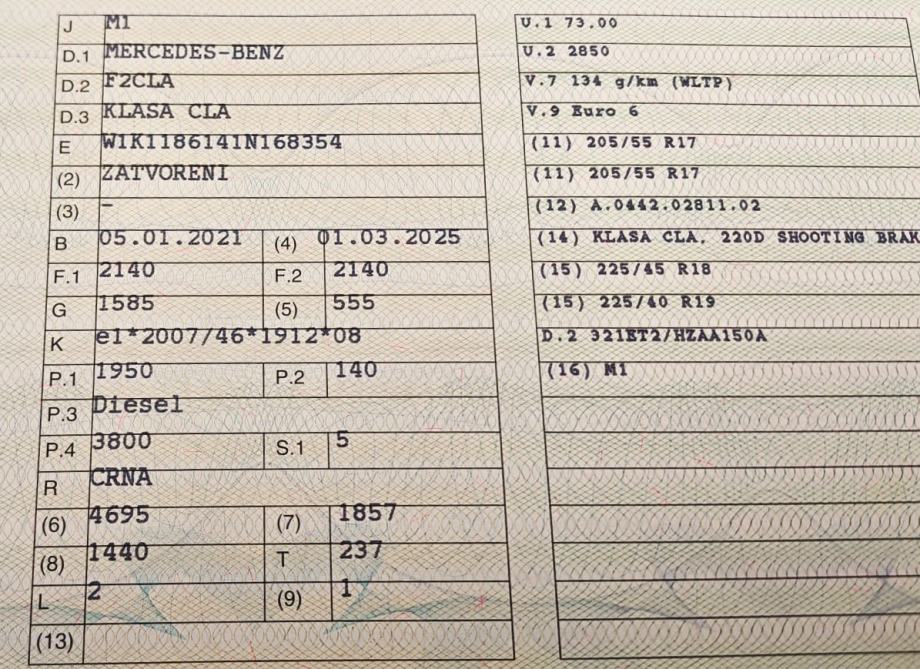 J M1
D.1 MERCEDES-BENZ
D.2 F2CLA
D.3 KLASA CLA
E W1K1186141N168354
(2) ZATVORENI
(3) –
B 05.01.2021 (4) 01.03.2025
F.1 2140 F.2 2140
G 1585 (5) 555
K e1*2007/46*1912*08
P.1 1950 P.2 140
P.3 Diesel
P.4 3800 S.1 5
R CRNA
(6) 4695 (7) 1857
(8) 1440 T 237
L 2 (9) 1
(13)
U.1 73.00
U.2 2850
V.7 134 g/km (WLTP)
V.9 Euro 6
(11) 205/55 R17
(11) 205/55 R17
(12) A.0442.02811.02
(14) KLASA CLA. 220D SHOOTING BRAK
(15) 225/45 R18
(15) 225/40 R19
D.2 321ET2/HZAA150A
(16) M1